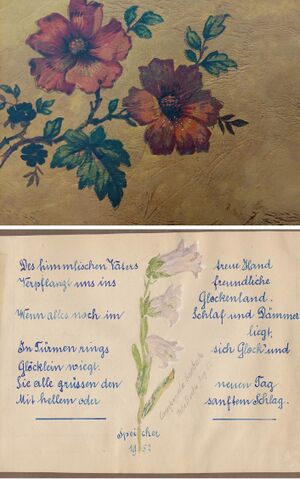 Des himmlischen Vaters treue Hand
Verpflanzt uns ins freundliche
Glockenland.
Wenn alles noch im Schlaf und Dämmer
liegt,
In Türmen rings sich Glock' und
Glöcklein wiegt.
Sie alle grüssen den neuen Tag
Mit hellem oder sanftem Schlag.
Speicher
1952